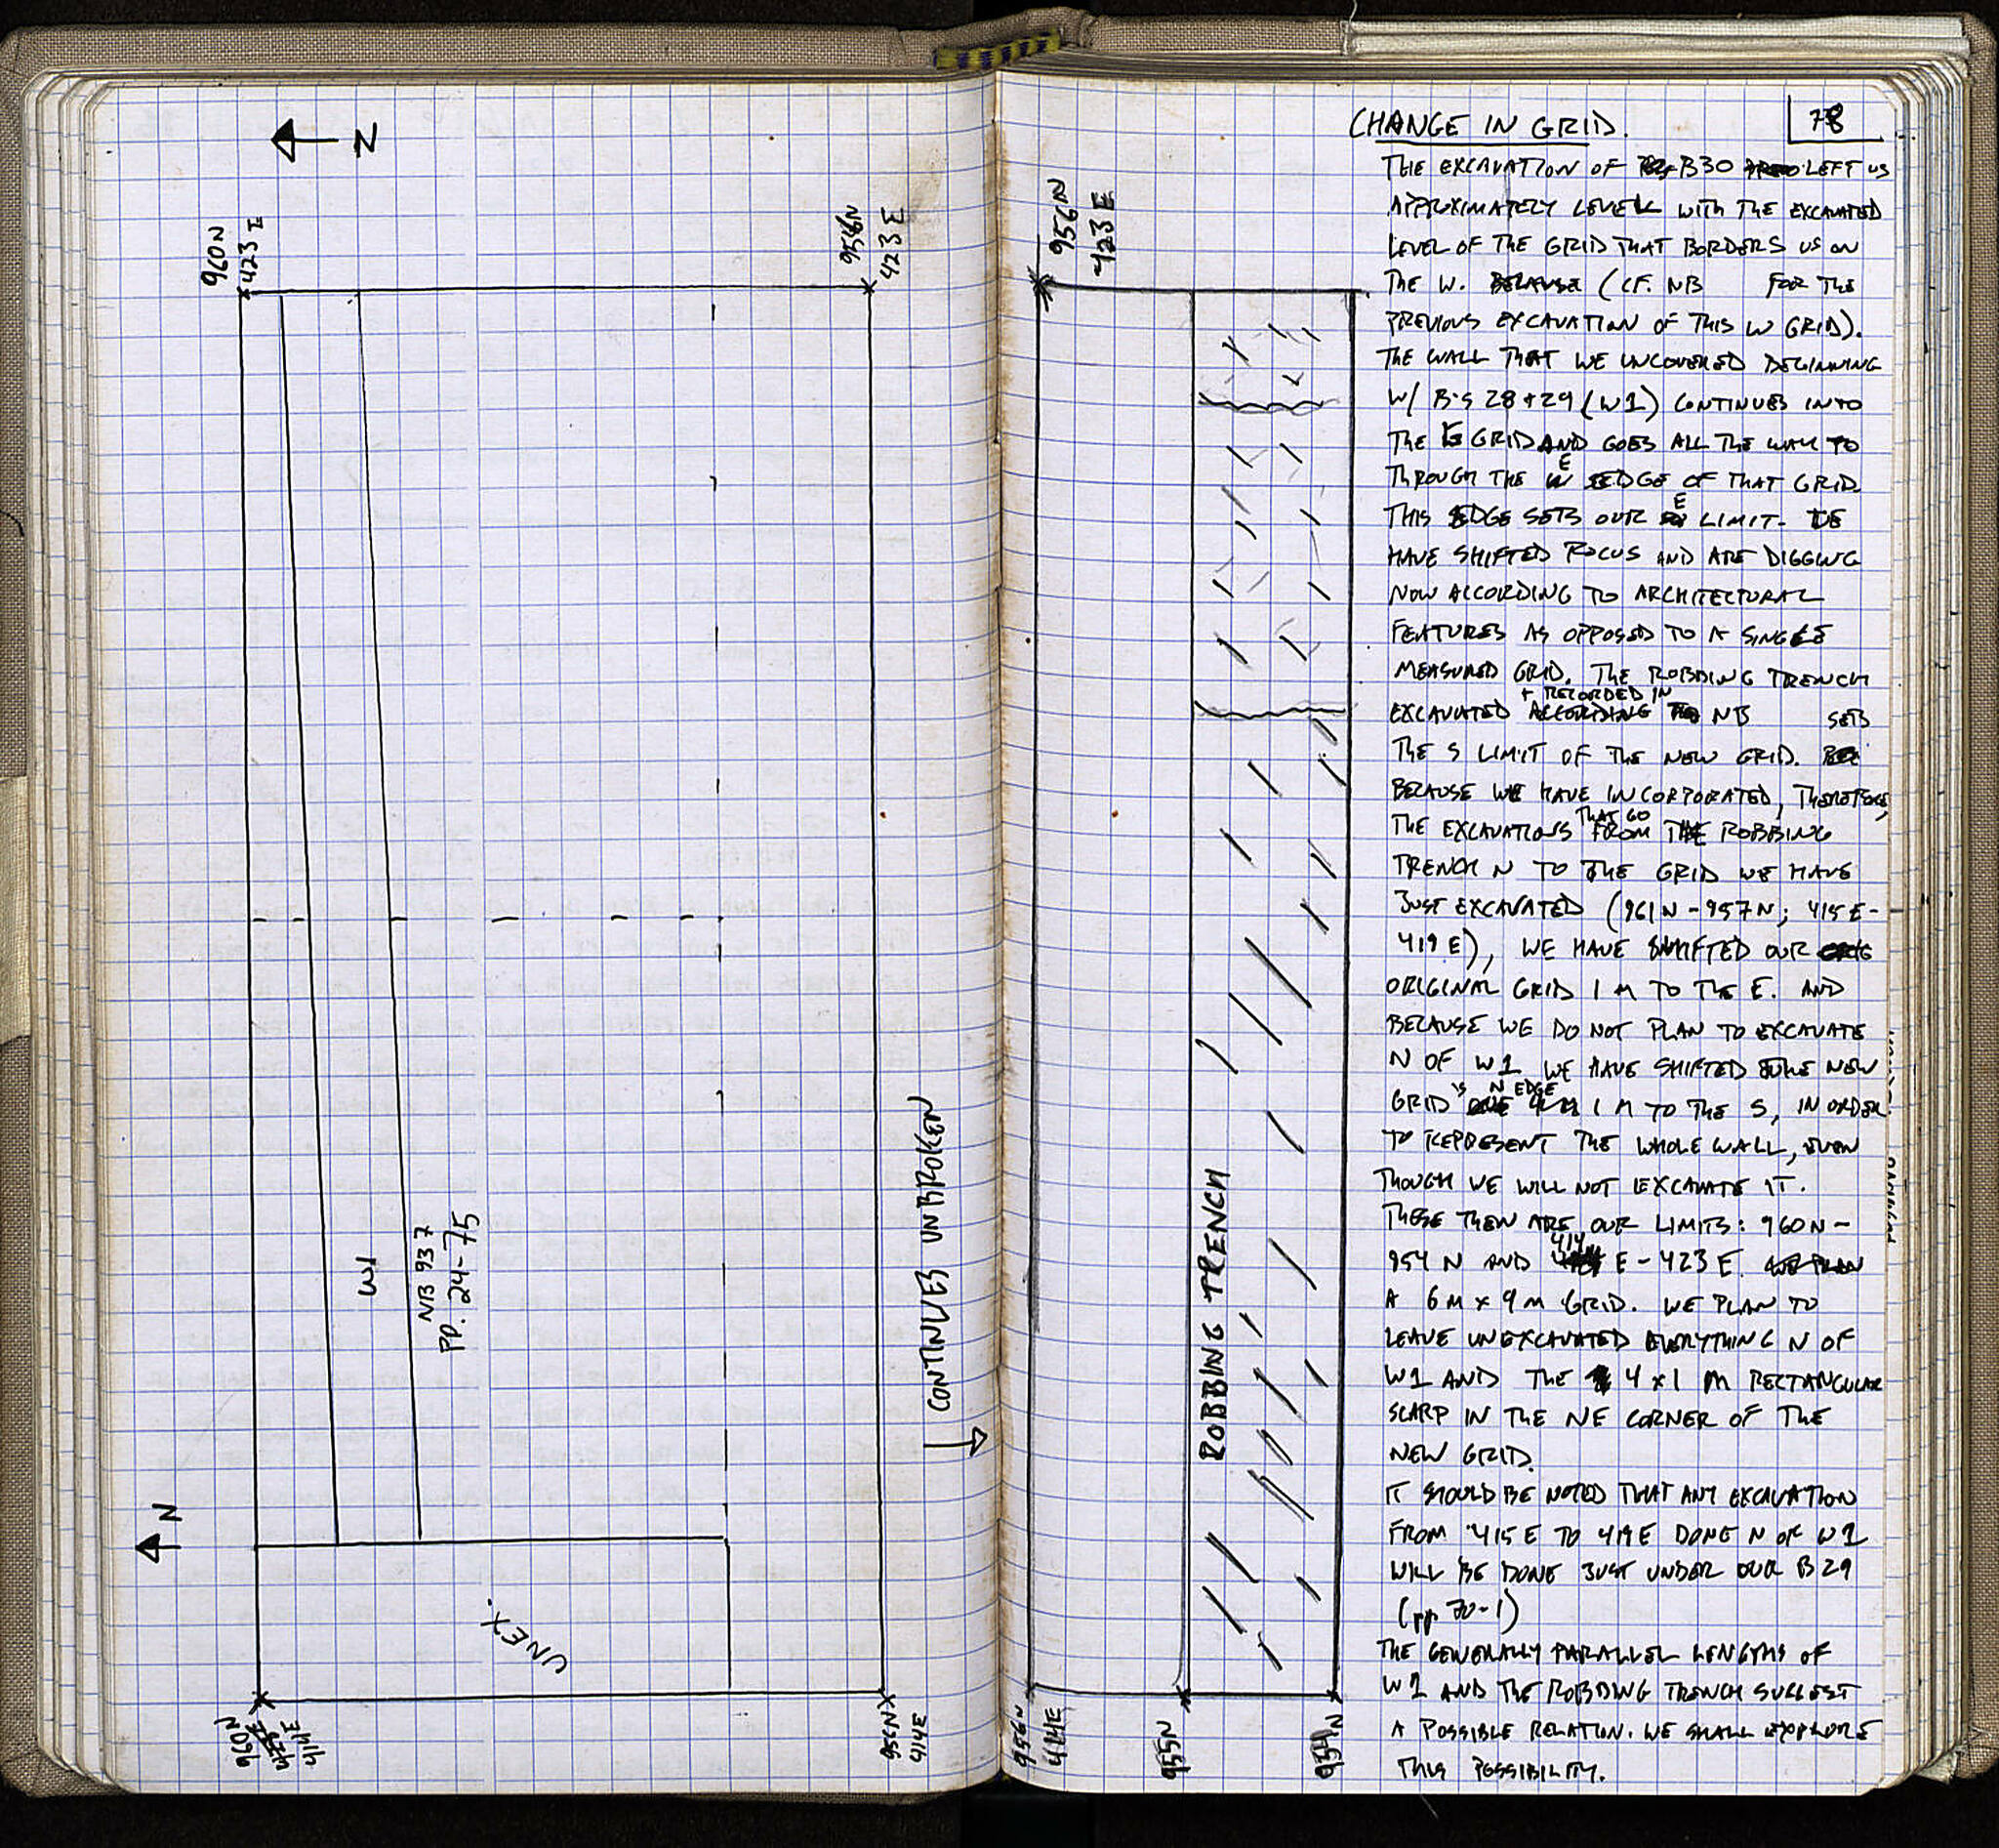 N
960N
423E
956N
423E
W1
NB 937
PP. 24-75
CONTINUES UNBROKEN
N
UNEX.
960N
414E
956N
414E
956N
423E
ROBBING TRENCH
956N
414E
955N
954N
CHANGE IN GRID.
78
THE EXCAVATION OF B30 LEFT US
APPROXIMATELY LEVEL WITH THE EXCAVATED
LEVEL OF THE GRID THAT BORDERS US ON
THE W. BECAUSE (CF. NB FOR THE
PREVIOUS EXCAVATION OF THIS W GRID).
THE WALL THAT WE UNCOVERED BEGINNING
W/ B'S 28 + 29 (W1) CONTINUES INTO
THE E GRID AND GOES ALL THE WAY TO
THROUGH THE E EDGE OF THAT GRID.
THIS EDGE SETS OUR E LIMIT. WE
HAVE SHIFTED FOCUS AND ARE DIGGING
NOW ACCORDING TO ARCHITECTURAL
FEATURES AS OPPOSED TO A SINGLE
MEASURED GRID. THE ROBBING TRENCH
EXCAVATED + RECORDED IN NB SETS
THE S LIMIT OF THE NEW GRID.
BECAUSE WE HAVE INCORPORATED, THEREFORE,
THE EXCAVATIONS THAT GO FROM THE ROBBING
TRENCH N TO THE GRID WE HAVE
JUST EXCAVATED (961N-957N; 415E-
419E), WE HAVE SHIFTED OUR
ORIGINAL GRID 1 M TO THE E. AND
BECAUSE WE DO NOT PLAN TO EXCAVATE
N OF W1 WE HAVE SHIFTED THE NEW
GRID'S N EDGE 1 M TO THE S, IN ORDER
TO REPRESENT THE WHOLE WALL, EVEN
THOUGH WE WILL NOT EXCAVATE IT.
THESE THEN ARE OUR LIMITS: 960N-
954N AND 414 E-423E. WE PLAN
A 6M X 9M GRID. WE PLAN TO
LEAVE UNEXCAVATED EVERYTHING N OF
W1 AND THE 4 X 1 M RECTANGULAR
SCARP IN THE NE CORNER OF THE
NEW GRID.
IT SHOULD BE NOTED THAT ANY EXCAVATION
FROM 415E TO 419E DONE N OF W1
WILL BE DONE JUST UNDER OUR B29
(pp 70-1)
THE GENERALLY PARALLEL LENGTHS OF
W1 AND THE ROBBING TRENCH SUGGEST
A POSSIBLE RELATION. WE SHALL EXPLORE
THIS POSSIBILITY.